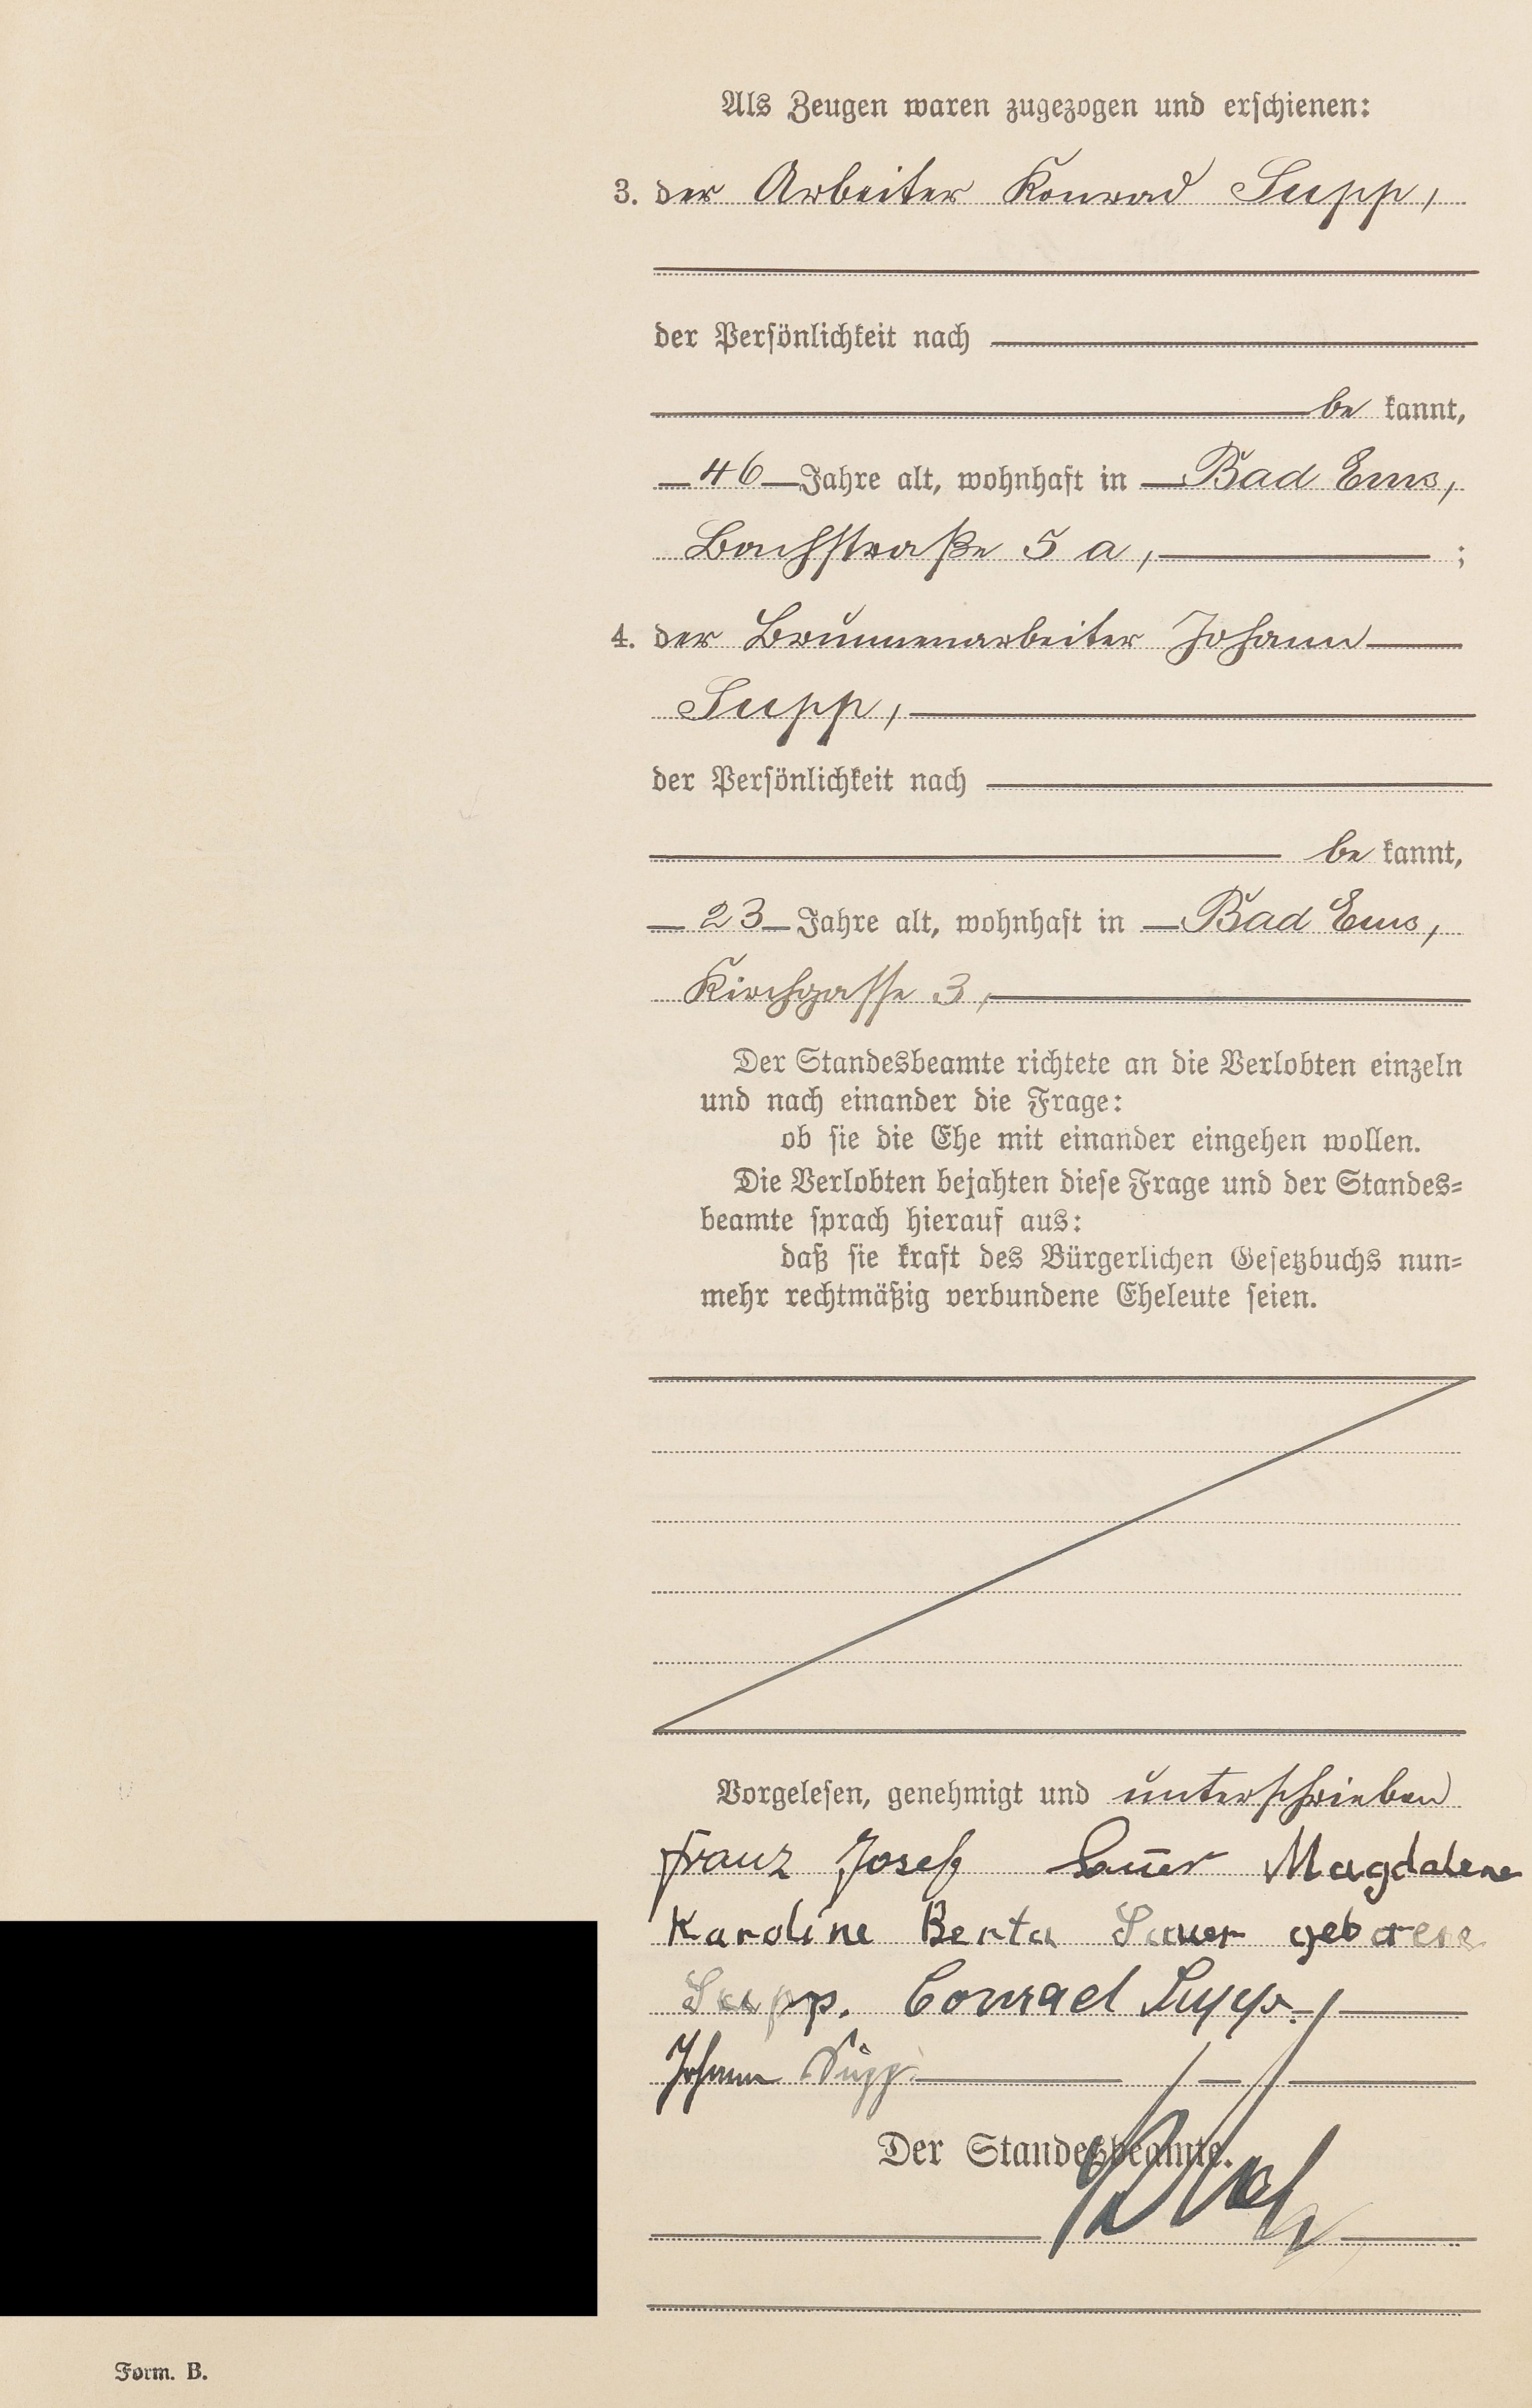 Als Zeugen waren zugezogen und erschienen:
3. der Arbeiter Konrad Supp,
der Persönlichkeit nach
be kannt,
46 Jahre alt, wohnhaft in Bad Ems,
Bachstraße 5 a, ;
4. der Brunnenarbeiter Johann
Supp,
der Persönlichkeit nach
be kannt,
23 Jahre alt, wohnhaft in Bad Ems,
Kirchgasse 3,
Der Standesbeamte richtete an die Verlobten einzeln
und nach einander die Frage:
ob sie die Ehe mit einander eingehen wollen.
Die Verlobten bejahten diese Frage und der Standes=
beamte sprach hierauf aus:
daß sie kraft des Bürgerlichen Gesetzbuchs nun=
mehr rechtmäßig verbundene Eheleute seien.
Vorgelesen, genehmigt und unterschrieben
Franz Josef Sauer Magdalene
Karoline Berta Sauer geborene
Supp. Conrad Supp.
Johann Supp.
Der Standesbeamte.
Form. B.